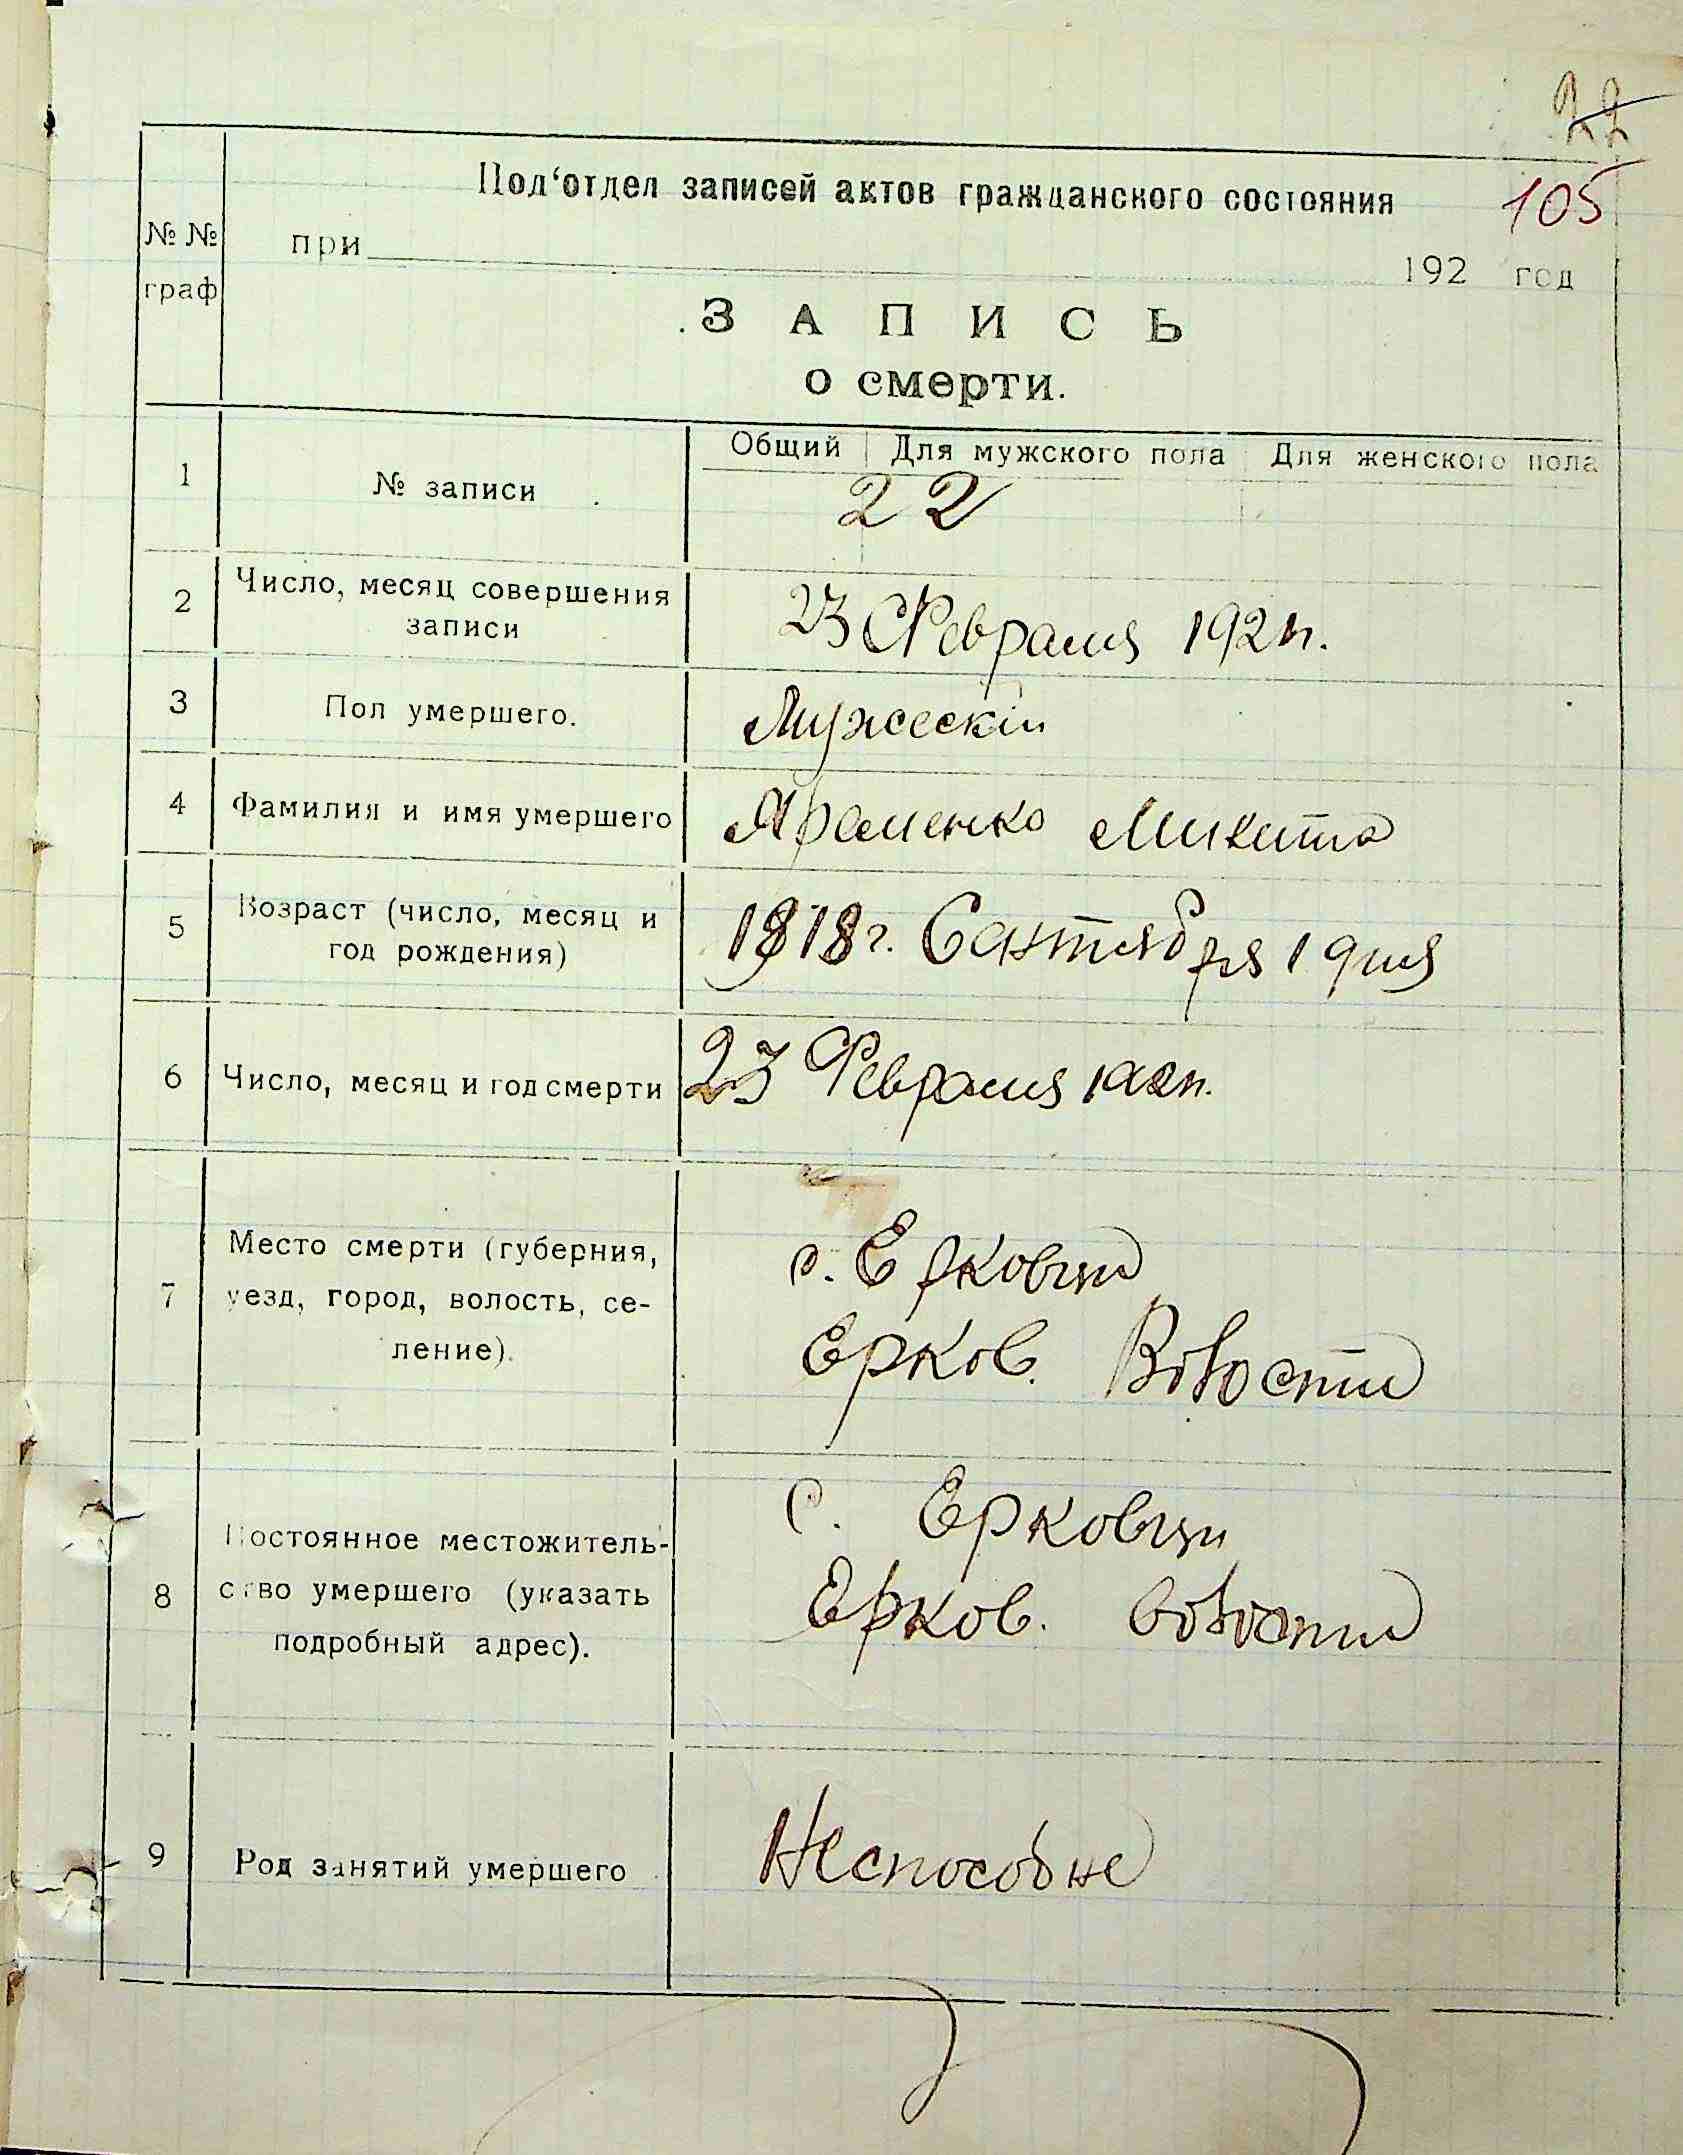 22
105
Под‘отдел записей актов гражданского состояния
№ №
граф
при 192 год
ЗАПИСЬ
о смерти.
Общий Для мужского пола Для женского пола
1 № записи 22
2 Число, месяц совершения
записи
23 Февраля 192 г.
3 Пол умершего. Мужескій
4 Фамилия и имя умершего Яраменко Микита
5 Возраст (число, месяц и
год рождения)
1818 г. Сактября 1 дня
6 Число, месяц и год смерти 23 Февраля
7 Место смерти (губерния,
уезд, город, волость, се-
ление).
с. Ерковци
Ерков. Волости
8 Постоянное местожитель-
ство умершего (указать
подробный адрес).
с. Ерковци
Ерков. волости
9 Род занятий умершего Неспособне